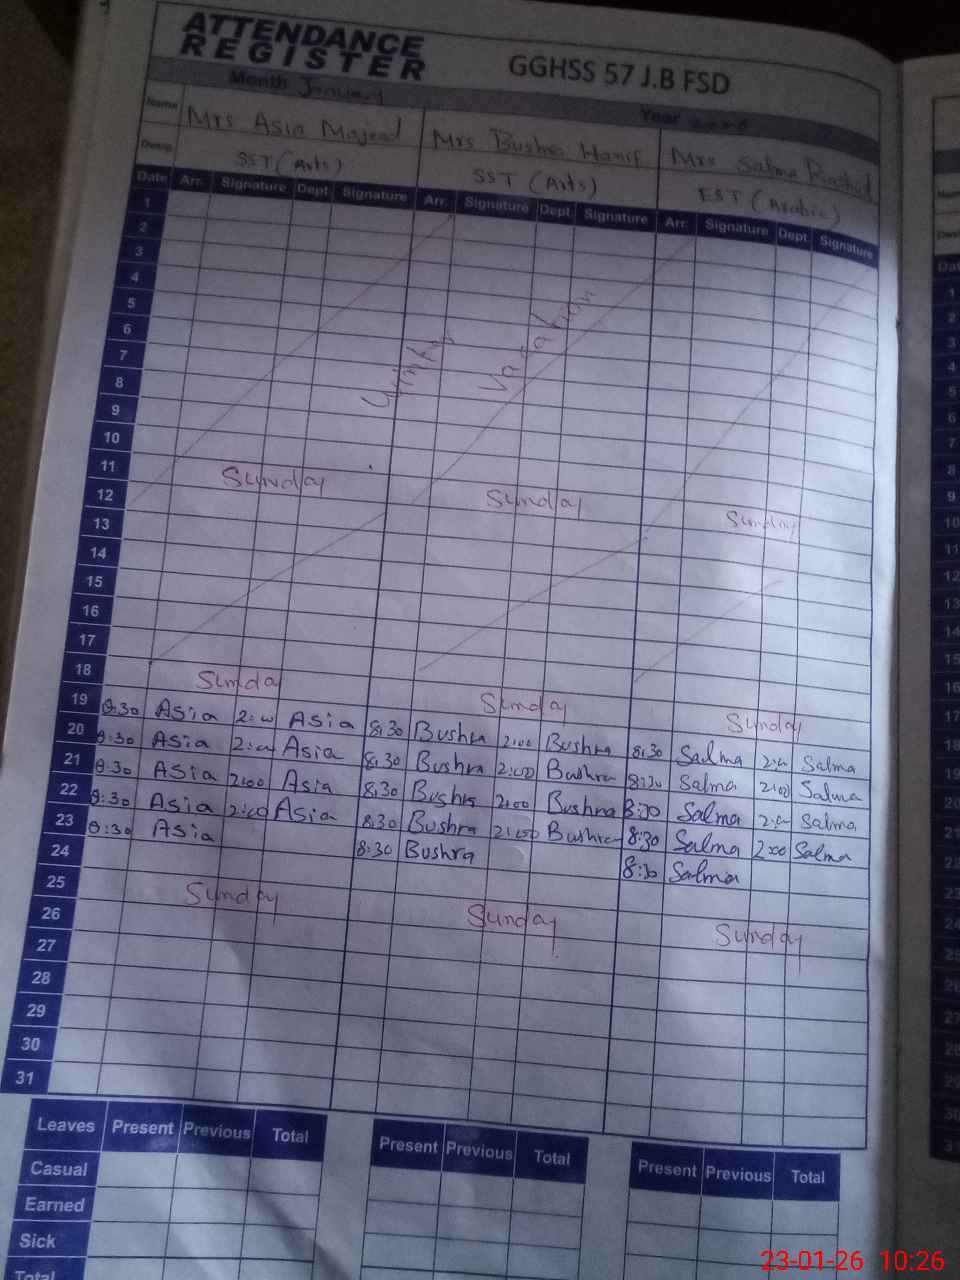 ATTENDANCE
REGISTER
GGHSS 57 J.B FSD
Month January Year 2026
Name Mrs Asia Majeed Mrs Bushra Hanif Mrs Salma Rashid
Desig. SST (Arts) SST (Arts) EST (Arabic)
Date Arr. Signature Dept. Signature Arr. Signature Dept. Signature Arr. Signature Dept. Signature
1
2
3
4
5
6
7
8
9
10
Winter Vacation
11 Sunday Sunday Sunday
12
13
14
15
16
17
18 Sunda Sunday Sunday
19 8:30 Asia 2:00 Asia 8:30 Bushra 2:00 Bushra 8:30 Salma 2:00 Salma
20 8:30 Asia 2:00 Asia 8:30 Bushra 2:00 Bushra 8:30 Salma 2:00 Salma
21 8:30 Asia 2:00 Asia 8:30 Bushra 2:00 Bushra 8:30 Salma 2:00 Salma
22 8:30 Asia 2:00 Asia 8:30 Bushra 2:00 Bushra 8:30 Salma 2:00 Salma
23 8:30 Asia 8:30 Bushra 8:30 Salma
24
25 Sunday Sunday Sunday
26
27
28
29
30
31
Leaves Present Previous Total Present Previous Total Present Previous Total
Casual
Earned
Sick
Total
23-01-26 10:26